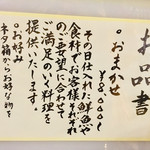 お品書
。おまかせ
¥8000〜
その日仕入れた鮮魚や
食材でお客様それぞれ
のご要望に合わせて
ご満足のいく料理を
提供いたします。
。お好み
ネタ箱からお好きな物を